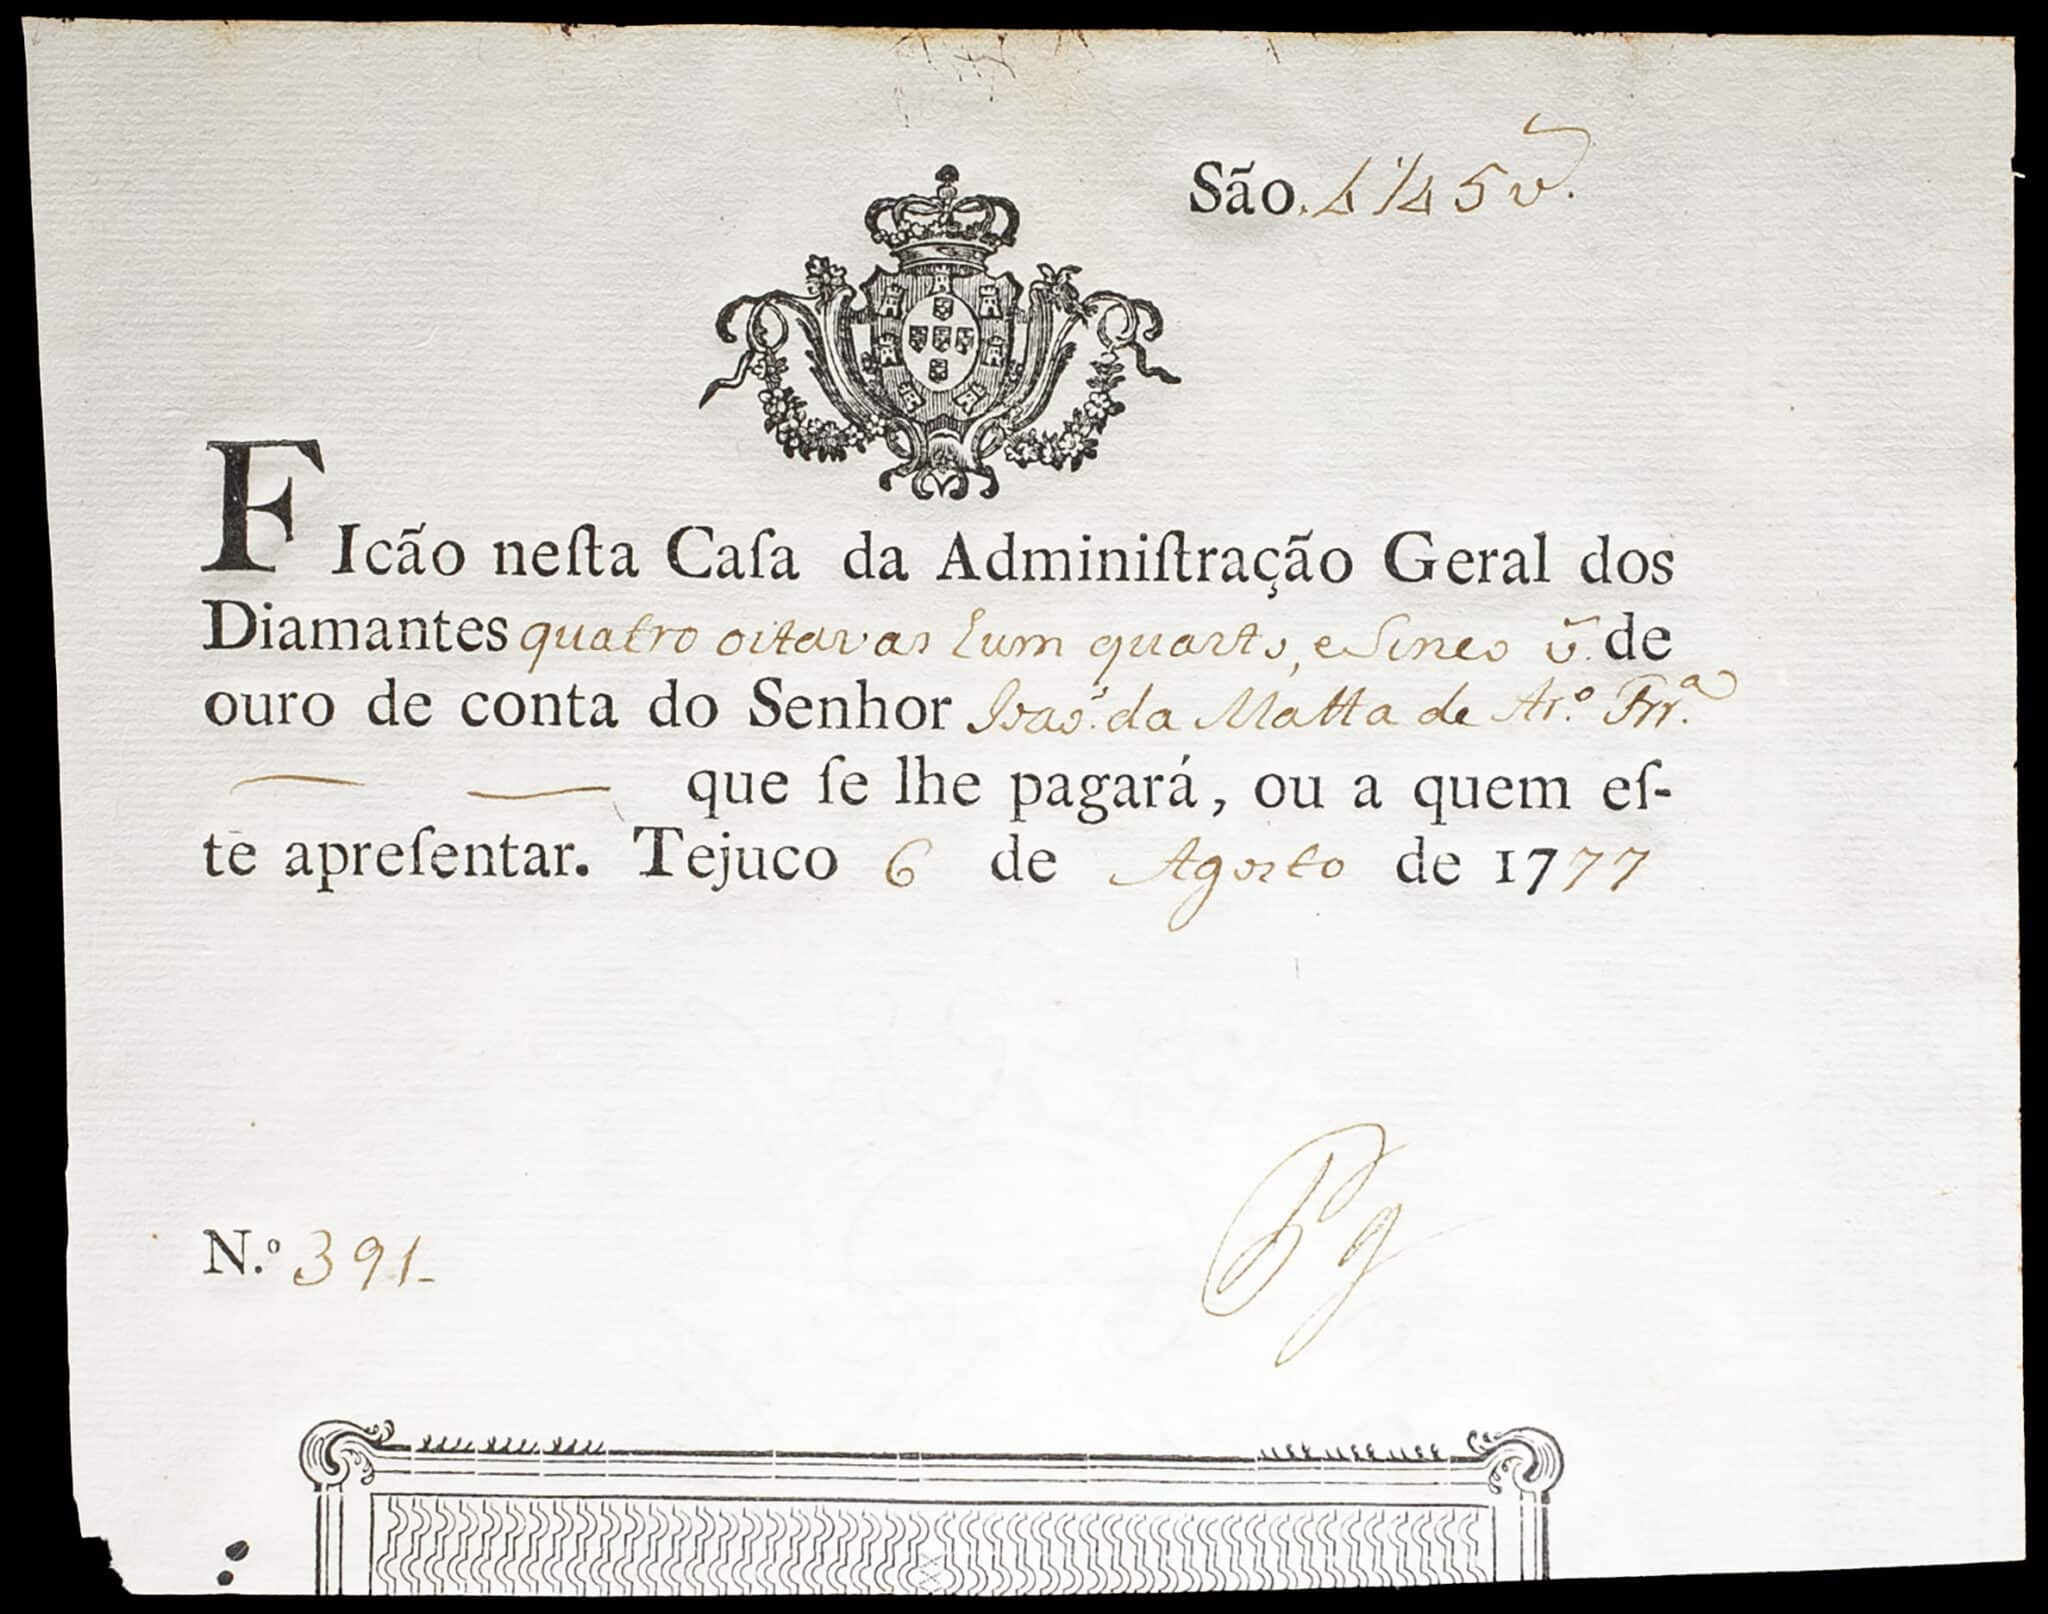 São. 4 1/4 5 v.
FIcão neſta Caſa da Adminiſtração Geral dos
Diamantes quatro oitavas hum quarto, e Sinco v. de
ouro de conta do Senhor da Matta de Ar.º Frr.ª
que ſe lhe pagará, ou a quem eſ-
te apreſentar. Tejuco 6 de Agosto de 1777
N.º 391-